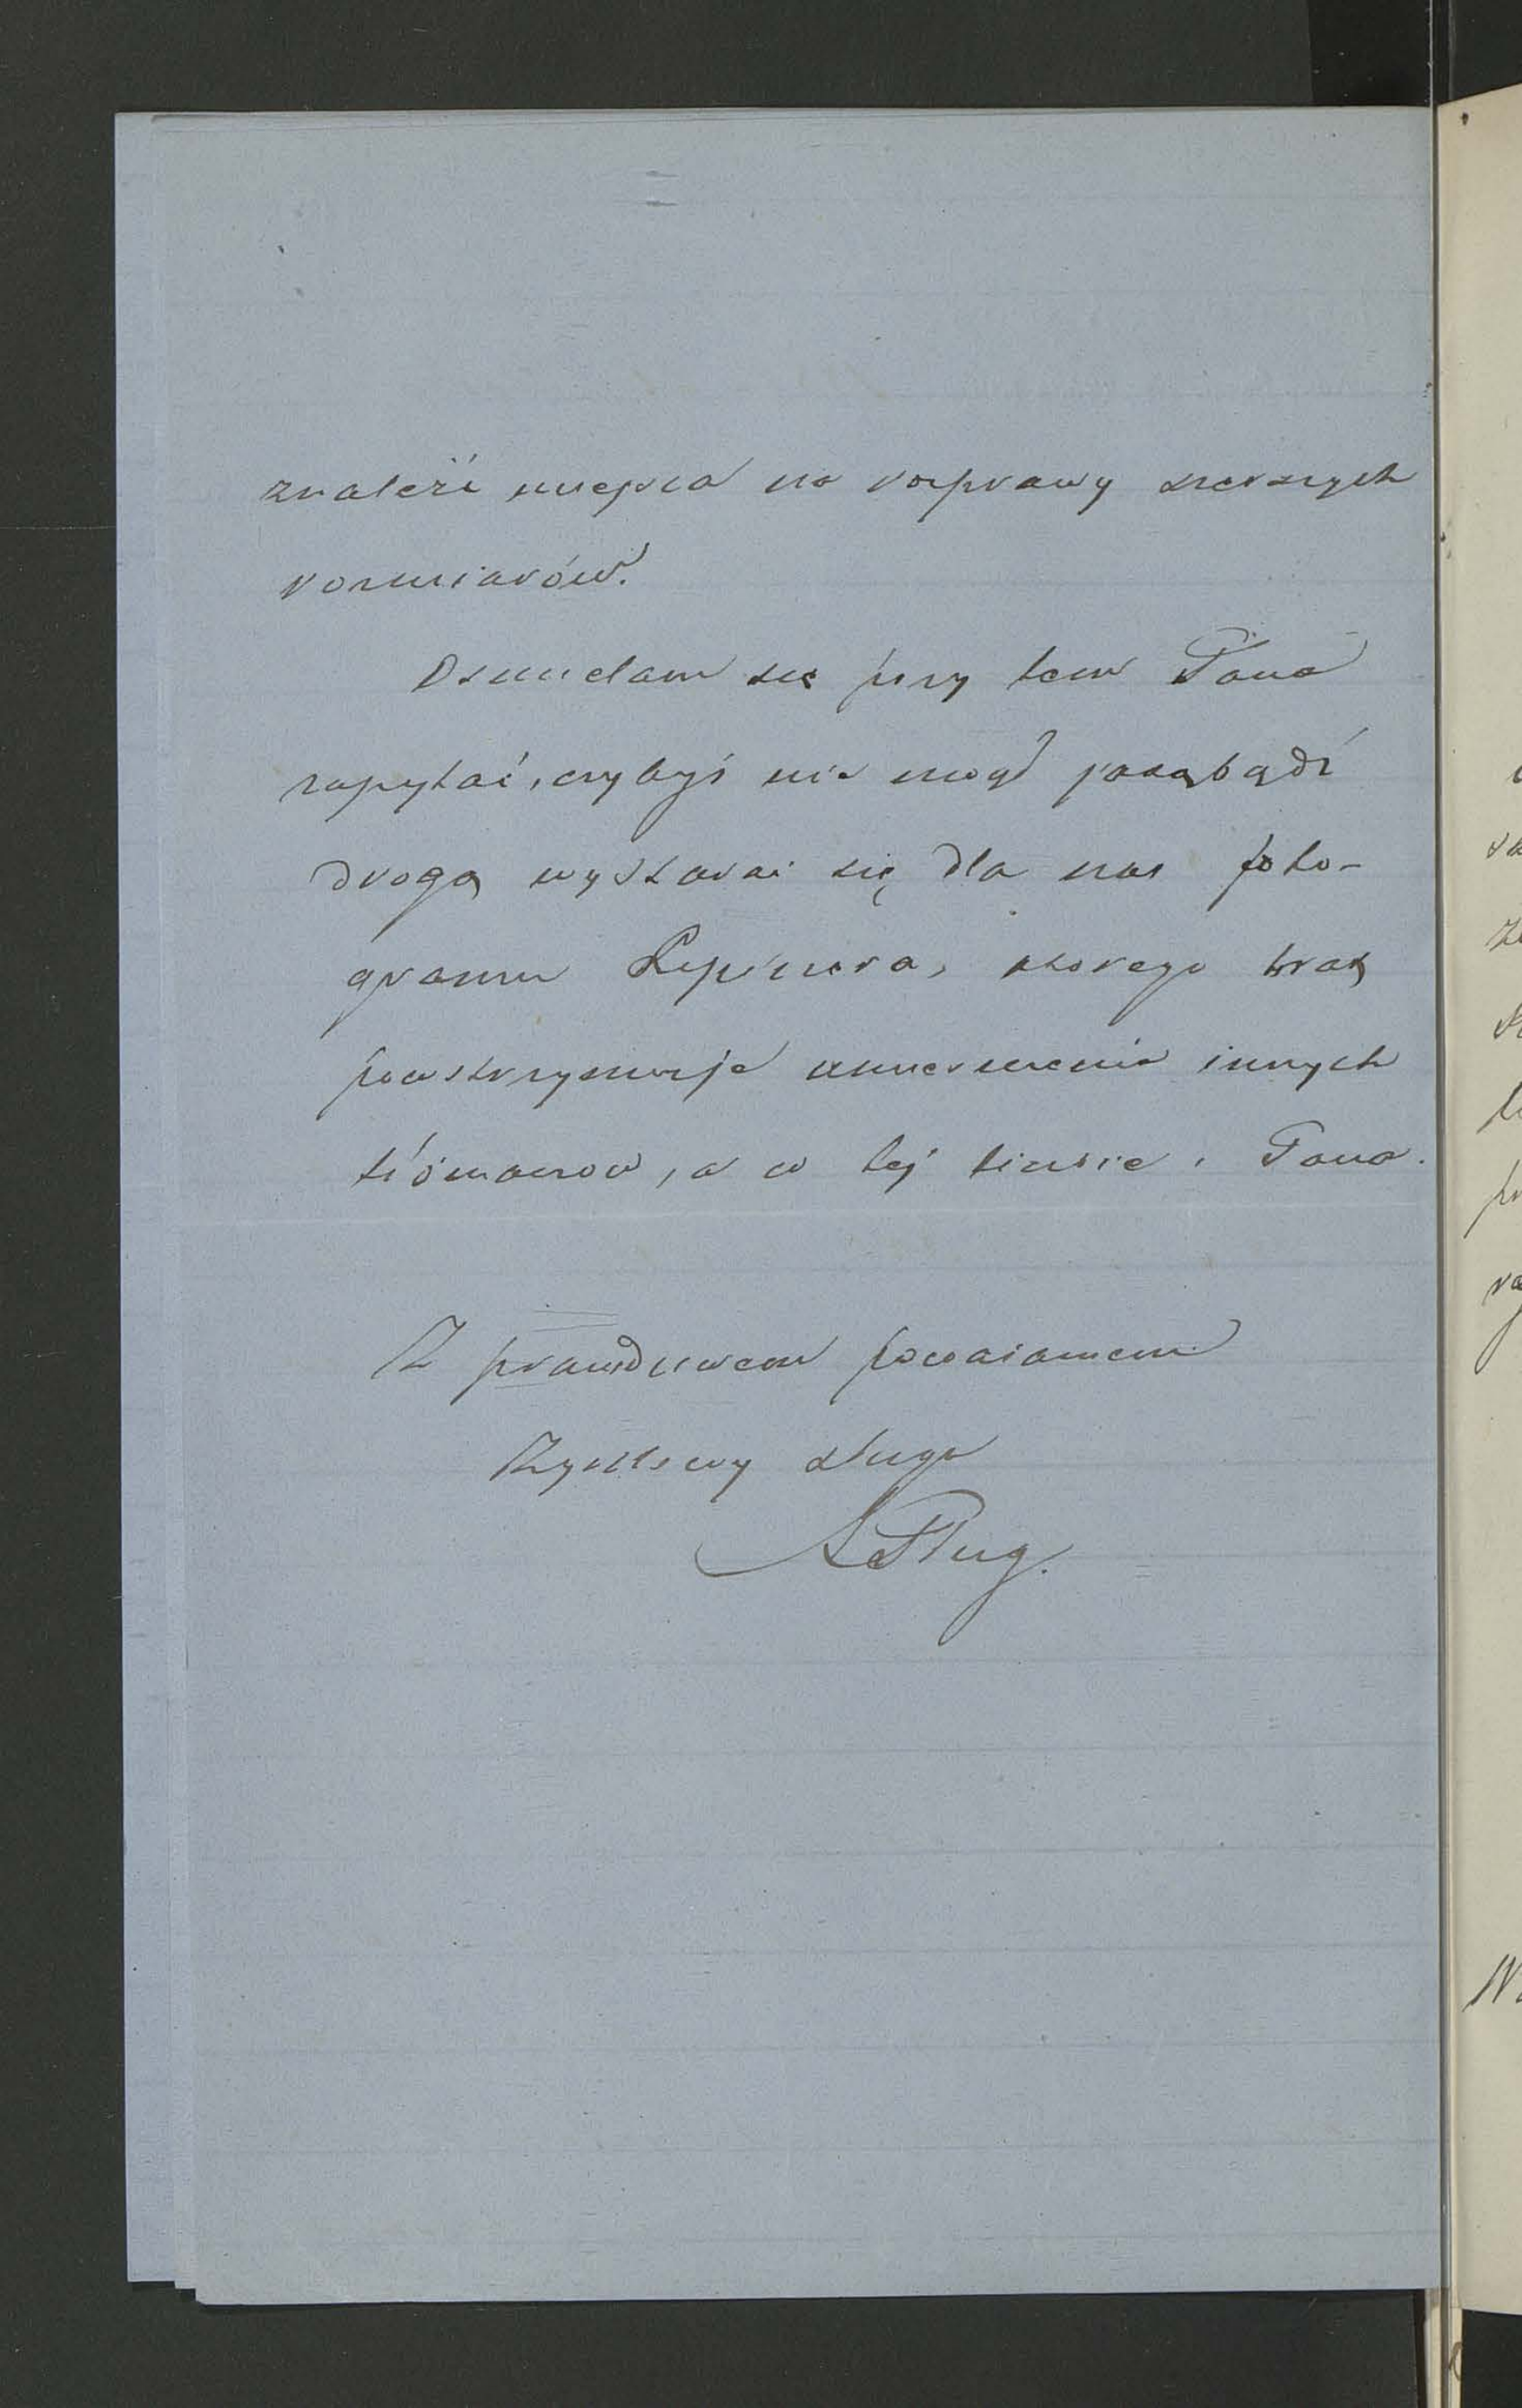 znaleźć miejsca na rozprawy szerszych
rozmiarów.
Ośmielam się przy tem Pana
zapytać, czybyś nie mógł jakąbądź
drogą wystarać się dla nas foto-
gramu Lepinera, którego brak
powstrzymuje umieszczenie innych
tłómaczów, a w tej liczbie i Pana.
Z prawdziwem poważaniem
Życzliwy sługa
A Pług.